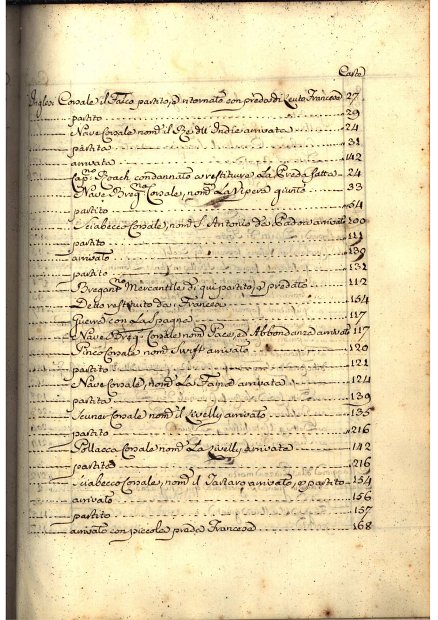 Carte
Inglesi Corsale il Falco partito, e ritornato con preda di Leuto Francese 27
partito 29
Nave Corsale nom.ª il Re dell Indie arrivata 24
partita 31
arrivata 142
Cap.º Roach condannato a restituire la Preda fatta 24
Nave Brig.no Corsale, nom.ª La Vipera giunto 33
partito 64
Sciabecco Corsale, nom.º S. Antonio da Padova arrivato 100
partito 111
arrivato 130
partito 131
Bregant.no Mercantile di qui partito, e predato 112
Detto restituito da Francesi 154
Guerra con La Spagna 117
Nave Brig.no Corsale nom.ª Pace, ed Abbondanza arrivato 117
Pinco Corsale nom.º Swift arrivato 120
partito 121
Nave Corsale, nom.ª La Fama arrivata 124
partita 139
Scuner Corsale nom.º il Lively arrivato 135
partito 216
Pollacca Corsale nom.ª La Lively arrivata 142
partita 216
Sciabecco Corsale, nom.º il Tartaro arrivato, e partito 154
arrivato 156
partito 157
arrivato con piccola preda Francese 168